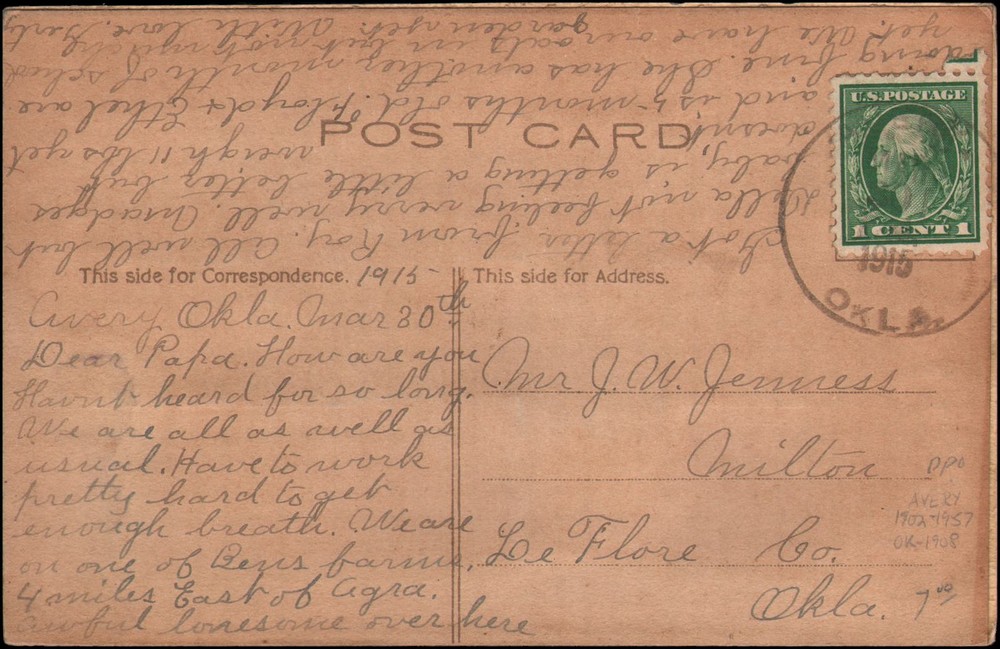 POST CARD
U.S. POSTAGE
1 CENT 1
1915
OKLA.
This side for Correspondence. 1915
This side for Address.
Avery Okla. Mar 30th
Dear Papa. How are you
Havnt heard for so long.
We are all as well as
usual. Have to work
pretty hard to get
enough breath. We are
on one of Bens farms,
4 miles East of Agra.
awful lonesome over here
Got a letter from Roy. All well but
Della not feeling very well. Madges
baby is getting a little better but
doesn't weigh 11 lbs yet
and is 5 months old. Floyd & Ethel are
doing fine. She has another month of school
yet. We have our oats in but not much
garden yet. With love Gert
Mr J. W. Jenness
Milton
Le Flore Co.
Okla.
DPO
AVERY
1902-1957
OK-1908
7 00